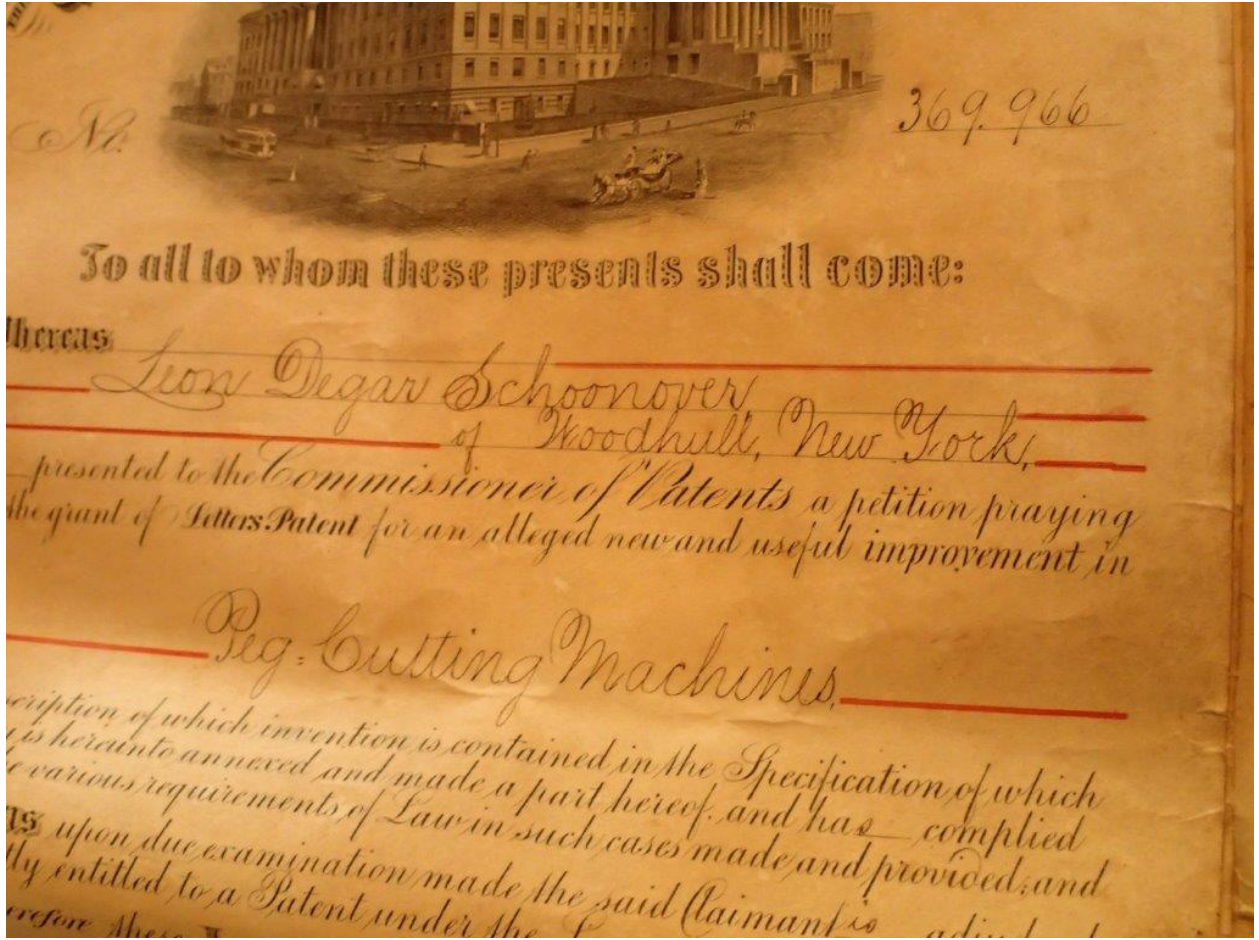 No. 369.966
To all to whom these presents shall come:
Whereas
Leon Degar Schoonover
of Woodhull, New York,
presented to the Commissioner of Patents a petition praying
the grant of Letters Patent for an alleged new and useful improvement in
Peg=Cutting Machines,
scription of which invention is contained in the Specification of which
is hereunto annexed and made a part hereof, and has complied
various requirements of Law in such cases made and provided; and
as upon due examination made the said Claimant is
ly entitled to a Patent under the
these